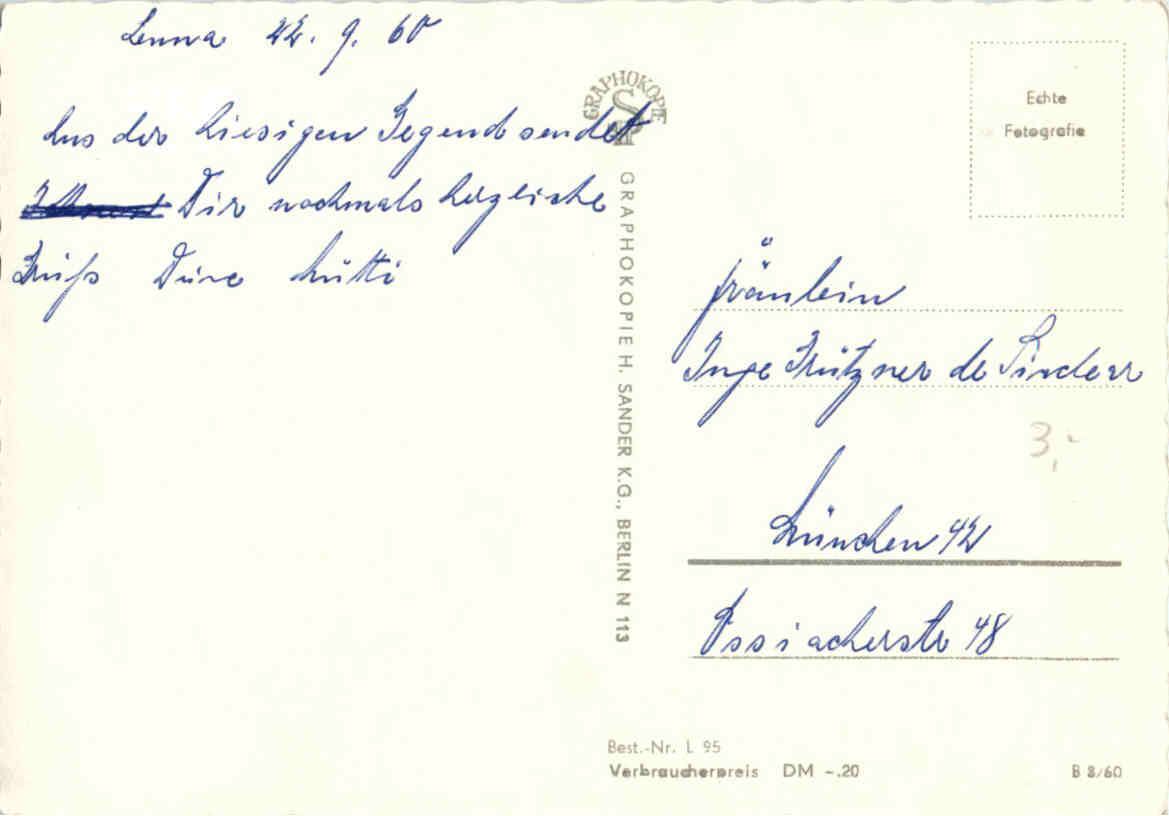 22. 9. 60
Aus der hiesigen Gegend sendet
Dir nochmals herzliche
Grüße Deine Mutti
GRAPHOKOPIE
GRAPHOKOPIE H. SANDER K.G., BERLIN N 113
Echte
Fotografie
Fräulein
Inge
München 42
Ossiacherstr 48
3,-
Best.-Nr. L 95
Verbraucherpreis DM -.20
B 3/60